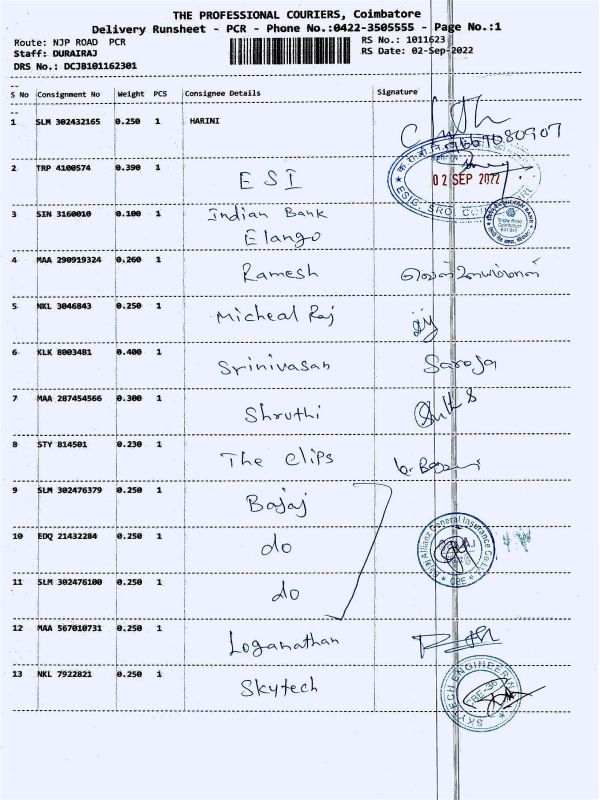 THE PROFESSIONAL COURIERS, Coimbatore
Delivery Runsheet - PCR - Phone No.:0422-3505555 - Page No.:1
Route: NJP ROAD PCR
RS No.: 1011623
Staff: DURAIRAJ
RS Date: 02-Sep-2022
DRS No.: DCJB101162301
S No Consignment No Weight PCS Consignee Details Signature
1 SLM 302432165 0.250 1 HARINI
2 TRP 4100574 0.390 1 ESI
02 SEP 2022
3 SIN 3160010 0.100 1 Indian Bank
Elango
4 MAA 290919324 0.260 1 Ramesh
5 NKL 3046843 0.250 1 Micheal Raj
6 KLK 8003481 0.400 1 Srinivasan Saroja
7 MAA 287454566 0.300 1 Shruthi
8 STY 814501 0.230 1 The Clips
9 SLM 302476379 0.250 1 Bajaj
10 EDQ 21432284 0.250 1 do
Bajaj Allianz General Insurance Co. Ltd.
CBE
11 SLM 302476100 0.250 1 do
12 MAA 567010731 0.250 1 Loganathan
13 NKL 7922821 0.250 1 Skytech
SKYTECH ENGINEERING